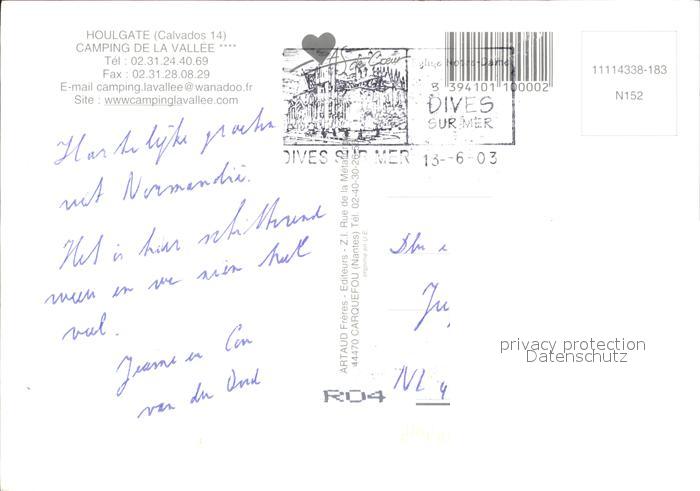 HOULGATE (Calvados 14)
CAMPING DE LA VALLEE ****
Tél : 02.31.24.40.69
Fax : 02.31.28.08.29
E-mail camping.lavallee@wanadoo.fr
Site : www.campinglavallee.com
Hartelijke groeten
uit Normandië.
Het is hier schitterend
weer en we zien heel
veel.
Jeanne en Con
van der Oord
de Cœur
Notre-Dame
8 394101 100002
DIVES
SUR MER
DIVES SUR MER 13-6-03
11114338-183
N152
ARTAUD Frères - Editeurs - Z.I. Rue de la Métallurgie
44470 CARQUEFOU (Nantes) Tél. 02-40-30-28
Imprimé en U.E.
NL
R04
privacy protection
Datenschutz